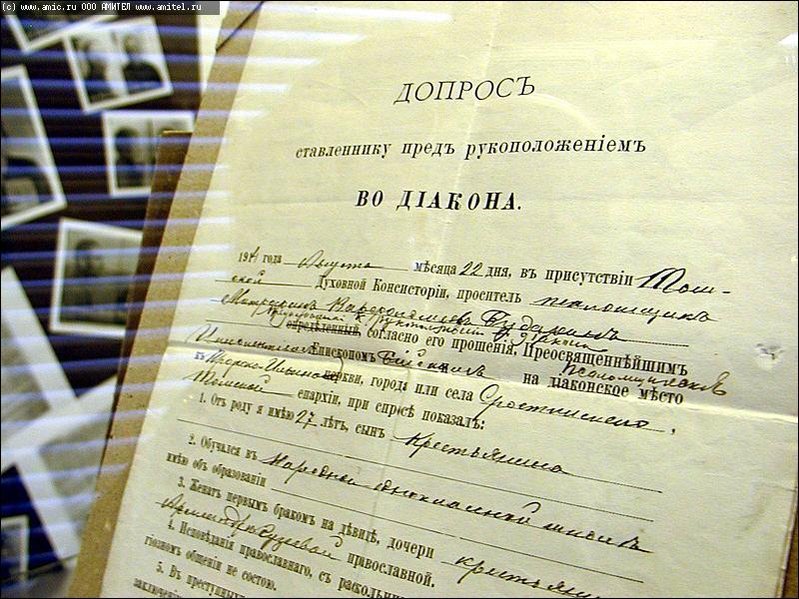 (c) www.amic.ru ООО АМИТЕЛ www.amitel.ru
ДОПРОСЪ
ставленнику предъ рукоположеніемъ
ВО ДІАКОНА.
191 года Августа мѣсяца 22 дня, въ присутствіи Том-
ской Духовной Консисторіи, проситель псаломщикъ
Митрофанъ
опредѣленный, согласно его прошенія, Преосвященнѣйшимъ
Епископомъ на псаломщическое діаконское мѣсто
въ церкви, города или села Сростинскаго,
Томской епархіи, при спросѣ показалъ:
1. Отъ роду я имѣю 27 лѣтъ, сынъ Крестьянина
2. Обучался въ Народной одноклассной школѣ
имѣю объ образованіи
3. Женатъ первымъ бракомъ на дѣвицѣ, дочери крестьян
православной.
4. Исповѣданія православнаго, съ расколь
гіозномъ общеніи не состою.
5. Въ преступны
заключені